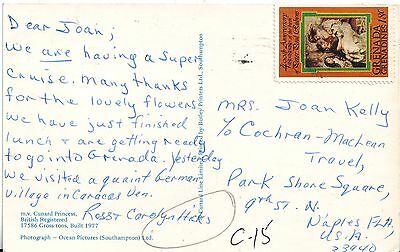 Dear Joan;
We are having a super
Cruise. Many thanks
for the lovely flowers.
We have just finished
lunch & are getting ready
to go into Grenada. Yesterday
we visited a quaint German
village in Caracas Ven.
Ross & Carolyn
m.v. Cunard Princess,
British Registered
17586 Gross tons, Built 1977
Photograph - Ocean Pictures (Southampton) Ltd.
Printed by Botley Printers Ltd., Southampton
GRENADA
GRENADINES
MRS. Joan Kelly
℅ Cochran-MacLean
Travel,
Park Shore Square,
St. N.
Naples Fla.
U.S.A.
33940
C-15